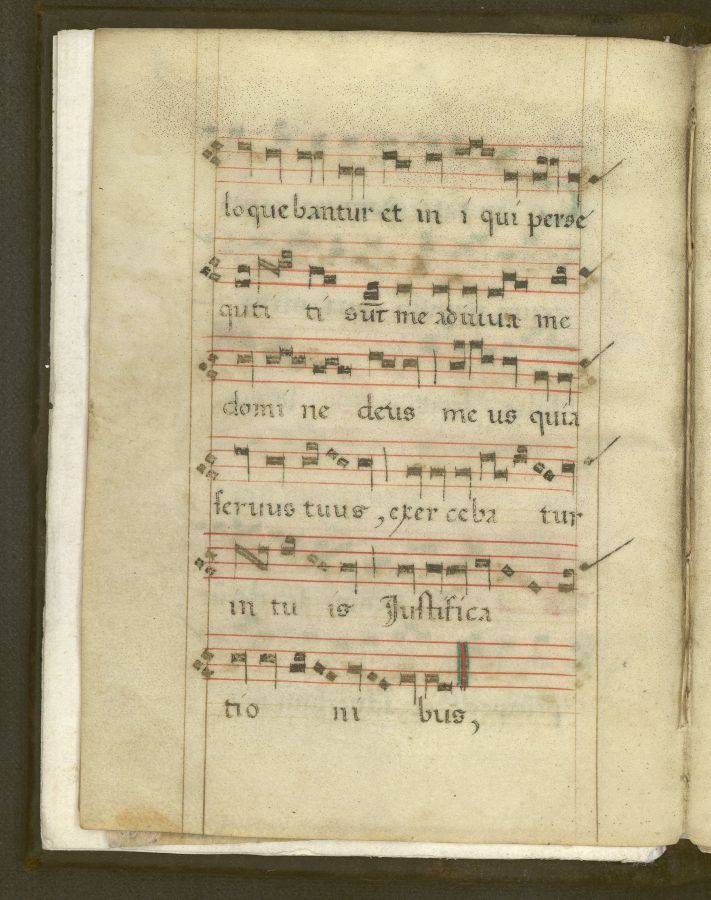 loquebantur et in i qui perse
quti ti sūt me adiuua me
domi ne deus me us quia
seruus tuus, exer ceba tur
in tu is Justifica
tio ni bus,